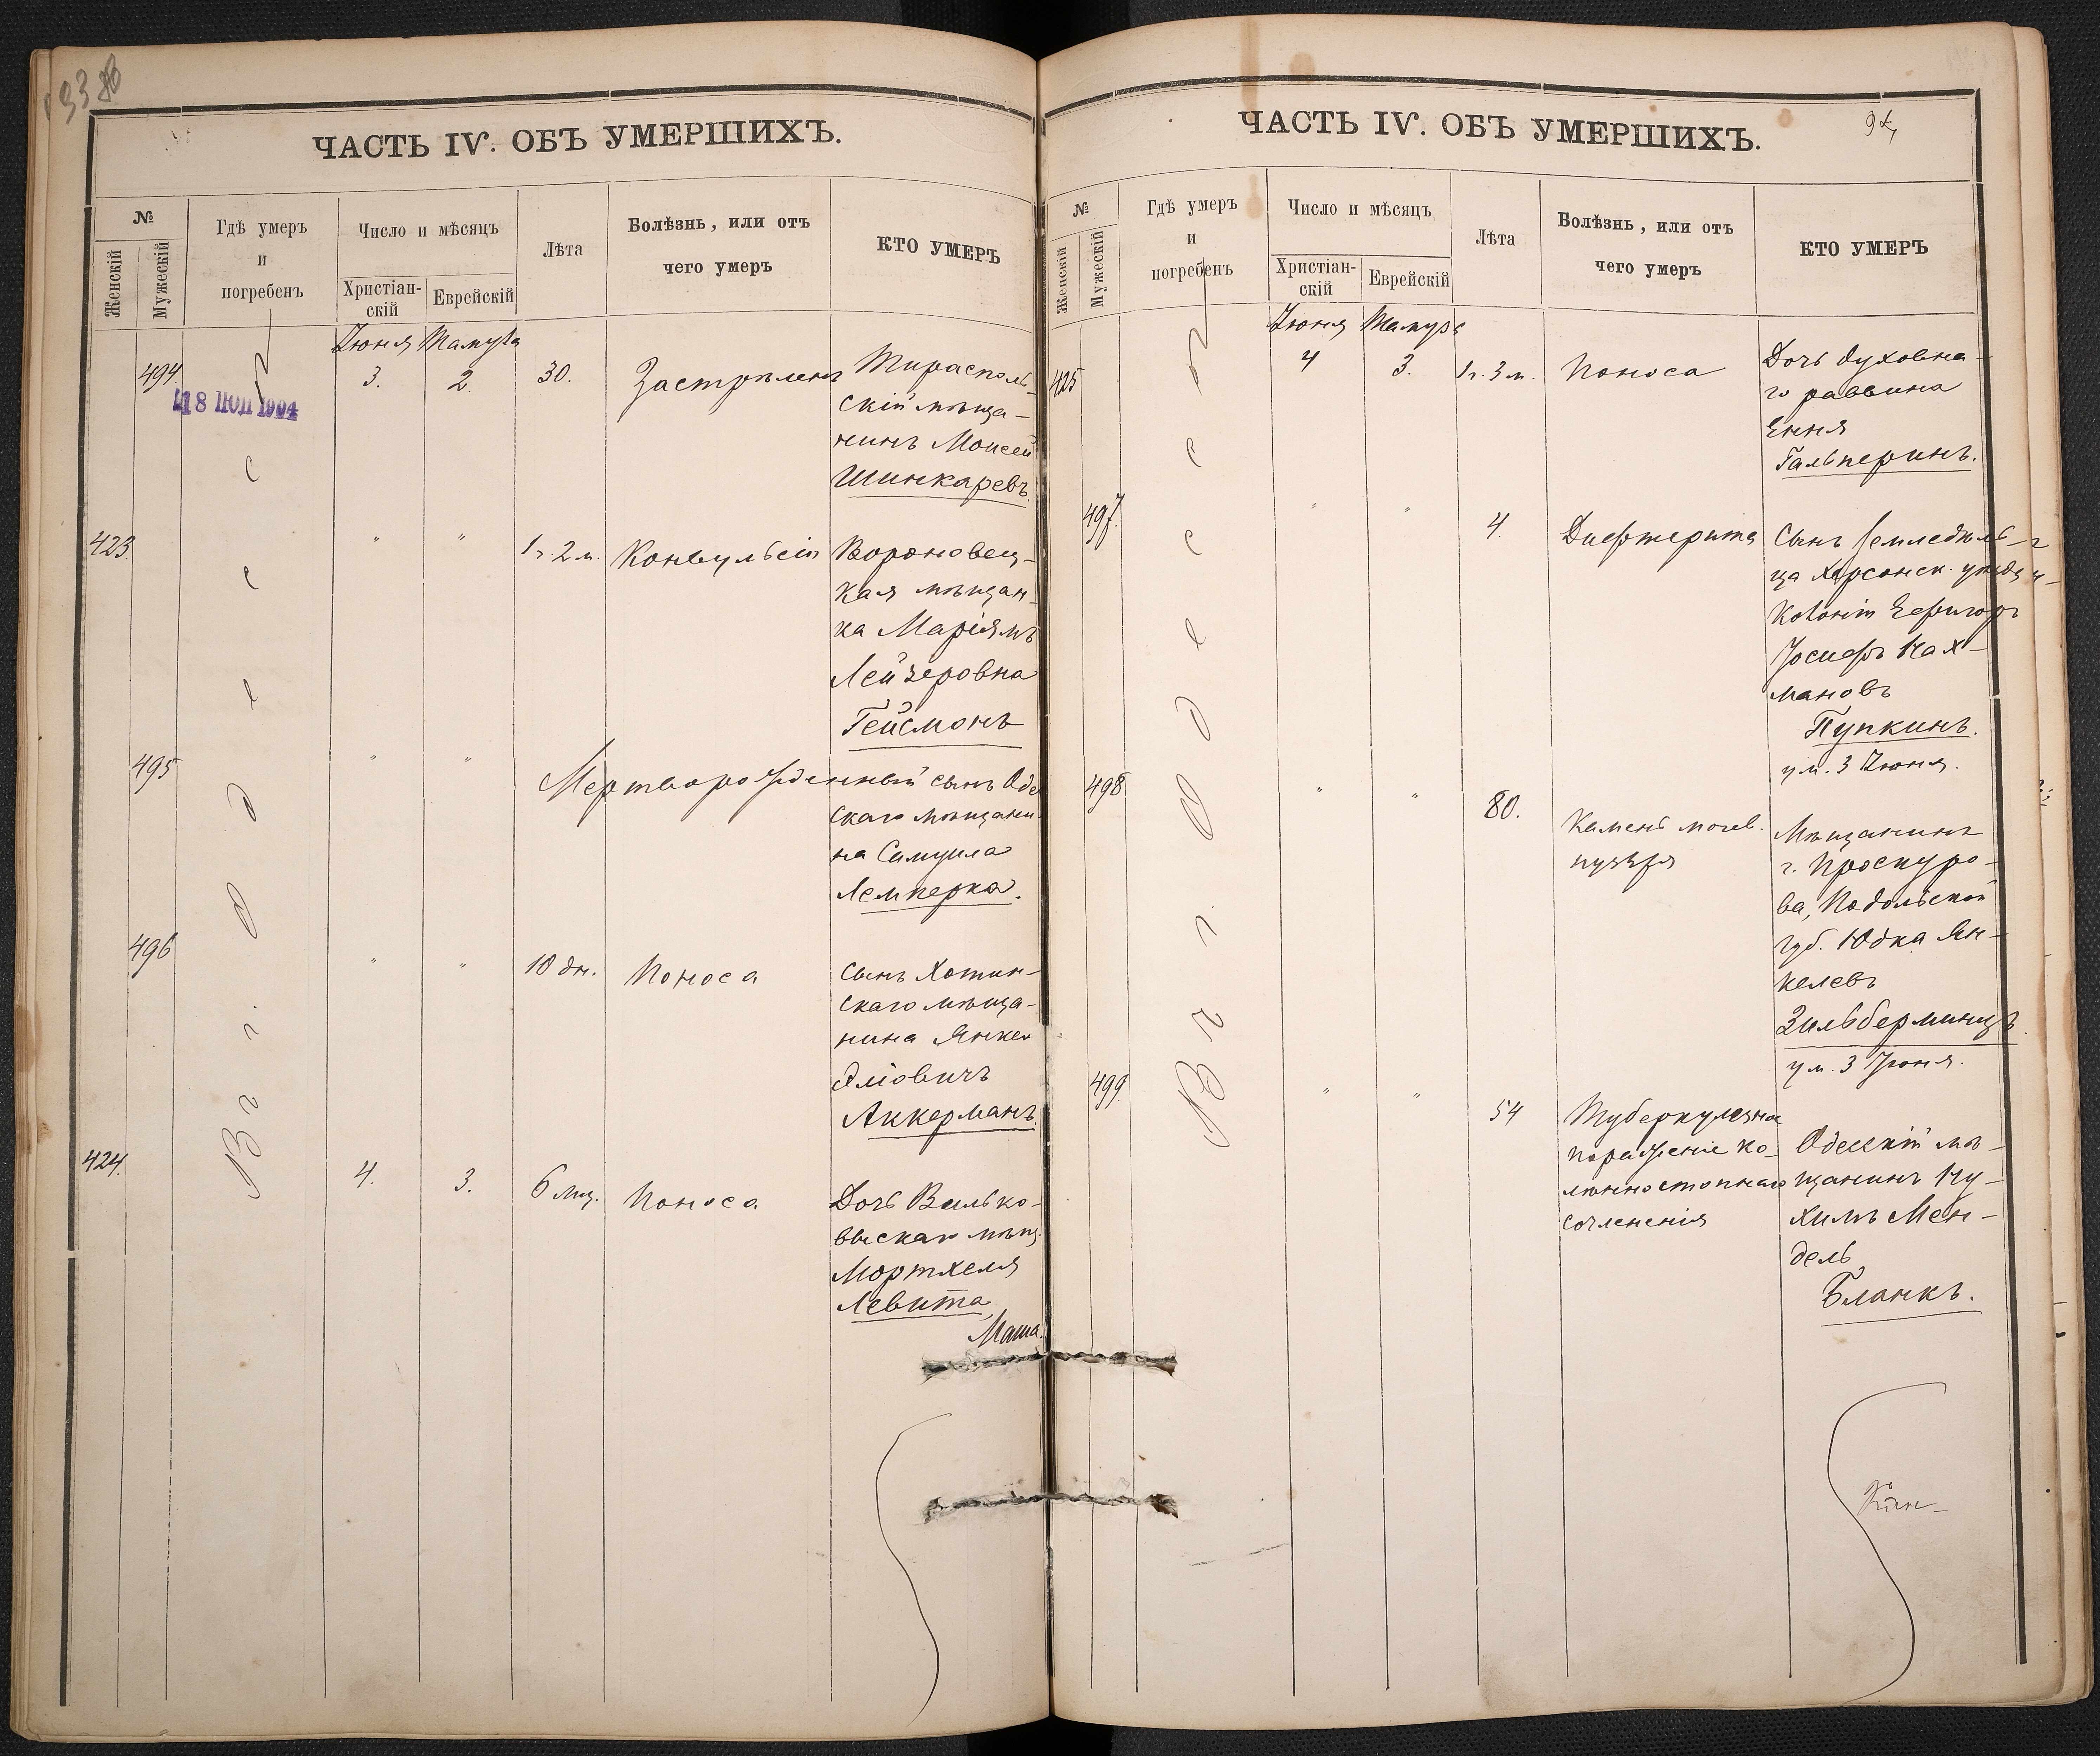 93 об
ЧАСТЬ IV. ОБЪ УМЕРШИХЪ.
№
Женскій
Мужескій
Гдѣ умеръ
и
погребенъ
Число и мѣсяцъ
Христіан-
скій
Еврейскій
Лѣта
Болѣзнь, или отъ
чего умеръ
КТО УМЕРЪ
Въ г. Одессѣ
Іюня Тамуза
494. 3. 2. 30. Застрѣленъ Тирасполь-
скій мѣща-
нинъ Моисей
Шинкаревъ.
423 " " 1 г. 2 м. Конвульсіи Вороновец-
кая мѣщан-
ка Маріямъ
Лейзеровна
Гейсмонъ
495 " " Мертворожденный сынъ Оде
скаго мѣщани-
на Самуила
Лемперка.
496 " " 10 дн. Поноса Сынъ Хотин-
скаго мѣща-
нина Янкел
Эліовичъ
Аккерманъ.
424. 4. 3. 6 мц. Поноса Дочь Вилько-
выскаго мѣщ.
Мортхеля
Левита
Маша.
ЧАСТЬ IV. ОБЪ УМЕРШИХЪ.
94
№
Женскій
Мужескій
Гдѣ умеръ
и
погребенъ
Число и мѣсяцъ
Христіан-
скій
Еврейскій
Лѣта
Болѣзнь, или отъ
чего умеръ
КТО УМЕРЪ
Въ г. Одессѣ
Іюня Тамуза
425 4 3. 1 г. 3 м. Поноса Дочь духовна-
го раввина
Ення
Гальперинъ.
497. " " 4. Дифтерита Сынъ земледѣль-
ца Херсонск. уѣзда
Колоніи Ефингоръ
Іосифъ Нах-
мановъ
Пупкинъ.
ум. 3 Іюня.
498 " " 80. Камень мочев.
пузыря
Мѣщанинъ
г. Проскуро-
ва, Подольской
губ. Юдка Ян-
келевъ
Зильберминцъ.
ум. 3 Іюня.
499. " " 54 Туберкулезное
пораженіе ко-
лѣнностопнаго
сочлененія
Одесскій мѣ-
щанинъ Ну-
химъ Мен-
дель
Бланкъ.